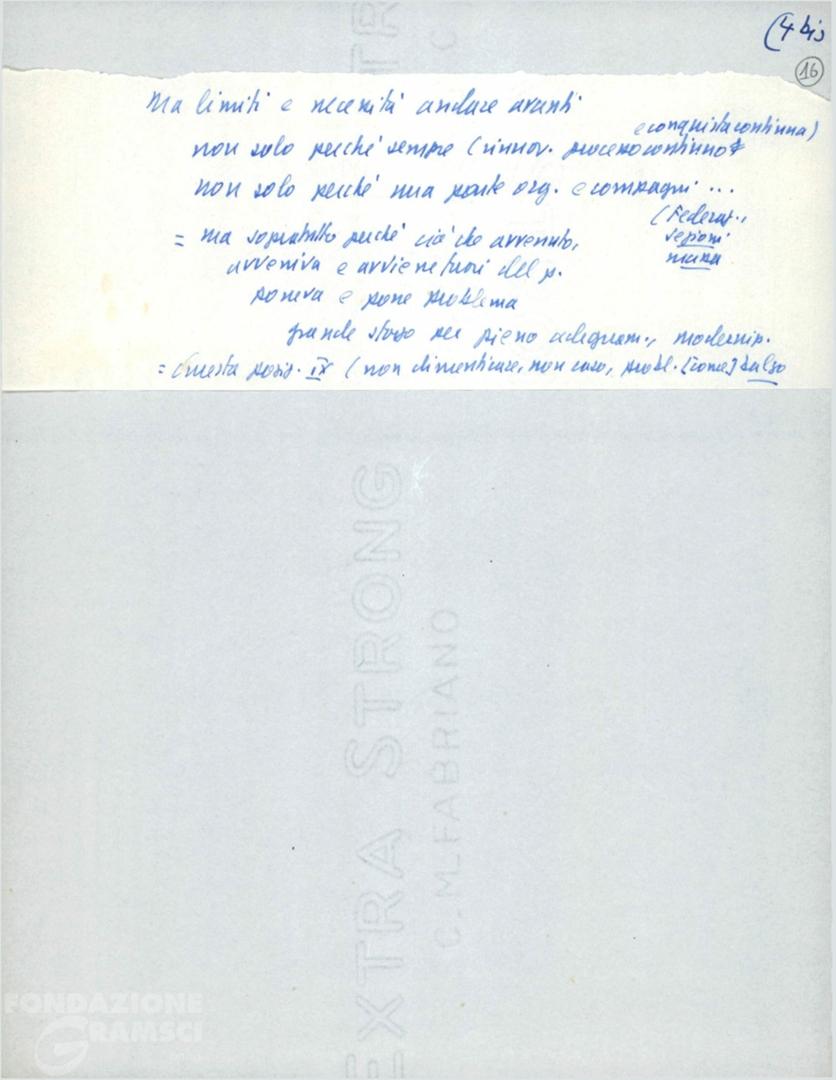 (4 bis
16
Ma limiti e necessità andare avanti
e conquista continua)
non solo perché sempre (rinnov. processo continuo
non solo perché una parte org. e compagni ...
(Federaz.,
sezioni
massa
= ma sopratutto perché ciò che avvenuto,
avveniva e avviene fuori del p.
poneva e pone problema
grande sforzo per pieno adeguam., moderniz.
= Questa posiz. IX (non dimenticare, non caso, probl. [come] balzo
EXTRA STRONG
C.M. FABRIANO
FONDAZIONE
GRAMSCI